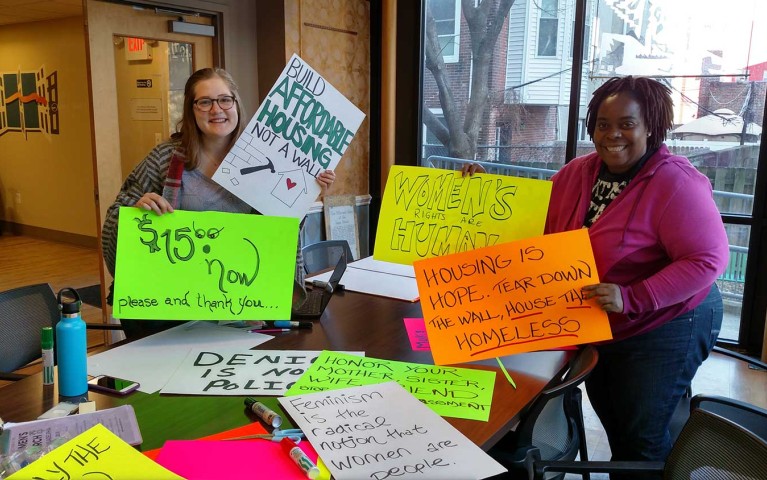 EXIT
BUILD
AFFORDABLE
HOUSING
NOT A WALL
$15.00
now
please and thank you...
WOMEN'S
RIGHTS ARE
HUMAN
HOUSING IS
HOPE. TEAR DOWN
THE WALL, HOUSE THE
HOMELESS
IS NO
POLI
HONOR YOUR
MOTHER, SISTER,
WIFE,
FRIEND
Feminism
is the
radical
notion that
women are
people.
THE